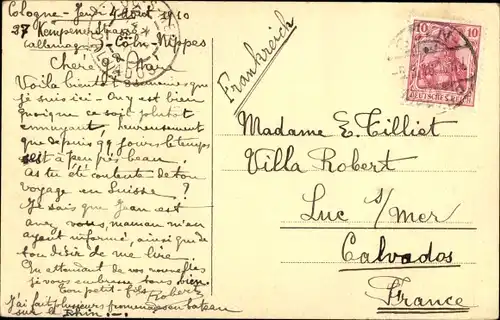 Cologne - Jeudi 4 Août 1910
27 Kempenerstrasse
(allemagne) - Cöln-Nippes
Chère
Voilà bientôt 1 semaine que
je suis ici. On y est bien
quoique ce soit plutôt
ennuyant, heureusement
que depuis jours le temps
est à peu près beau.
As tu été contente de ton
voyage en Suisse ?
Je sais que Jean est
avec vous, maman m'en
ayant informé, ainsi que de
ton désir de me lire.
En attendant de vos nouvelles
je vous embrasse tous bien
Ton petit-fils Robert
J'ai fait plusieurs promenades en bateau
sur le Rhin.
Frankreich
10 10
DEUTSCHES REICH
Madame E. Tilliet
Villa Robert
Luc s/Mer
Calvados
France